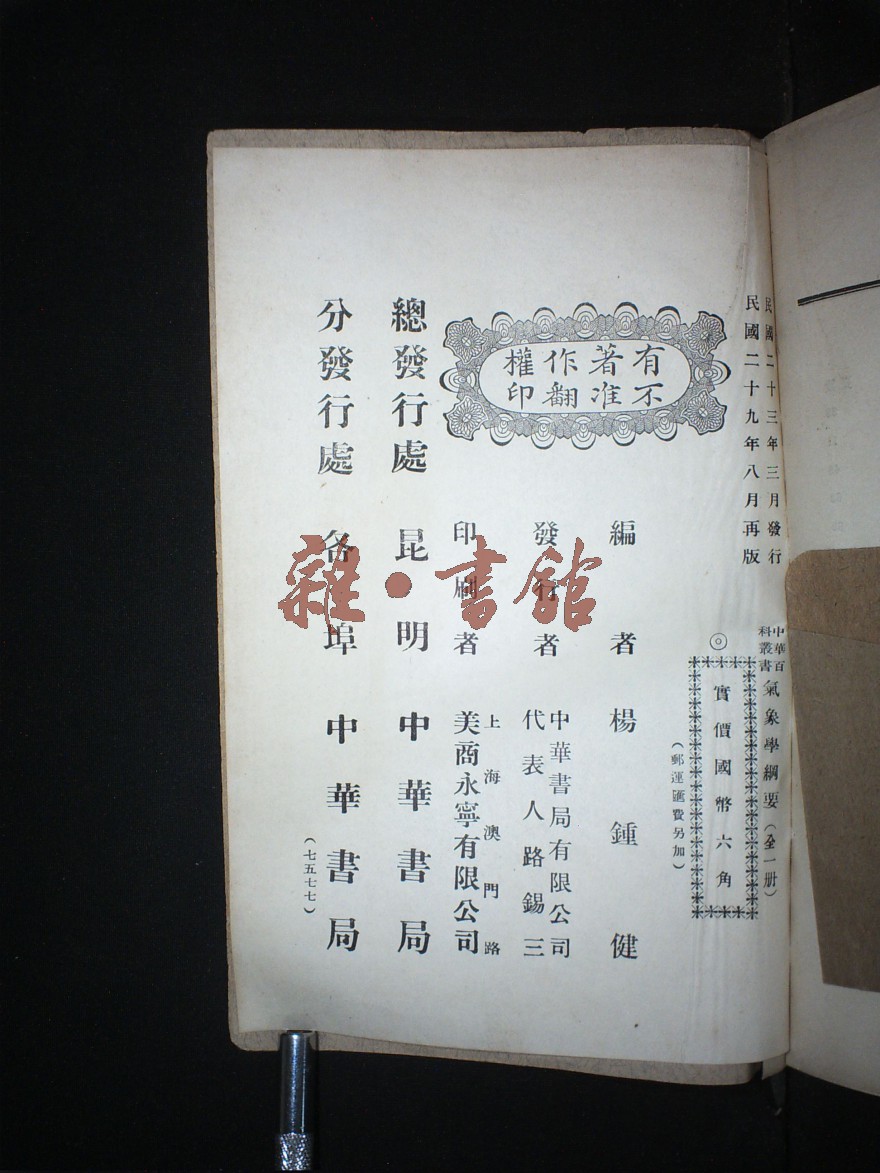 民國二十三年三月發行
民國二十九年八月再版
中華百科叢書 氣象學綱要（全一册）
◎實價國幣六角
（郵運匯費另加）
有著作權
不准翻印
編者 楊鍾健
發行者 中華書局有限公司
代表人路錫三
印刷者 上海澳門路
美商永寧有限公司
總發行處 昆明 中華書局
分發行處 各埠 中華書局
（七五七七）
雜·書館